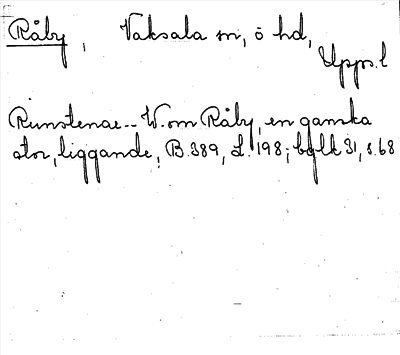 Råby, Vaksala sn, ö hd,
Upps. l
Runstenar -- W. om Råby, en ganska
stor, liggande, B. 389, L. 198; bqlk 31, s. 68